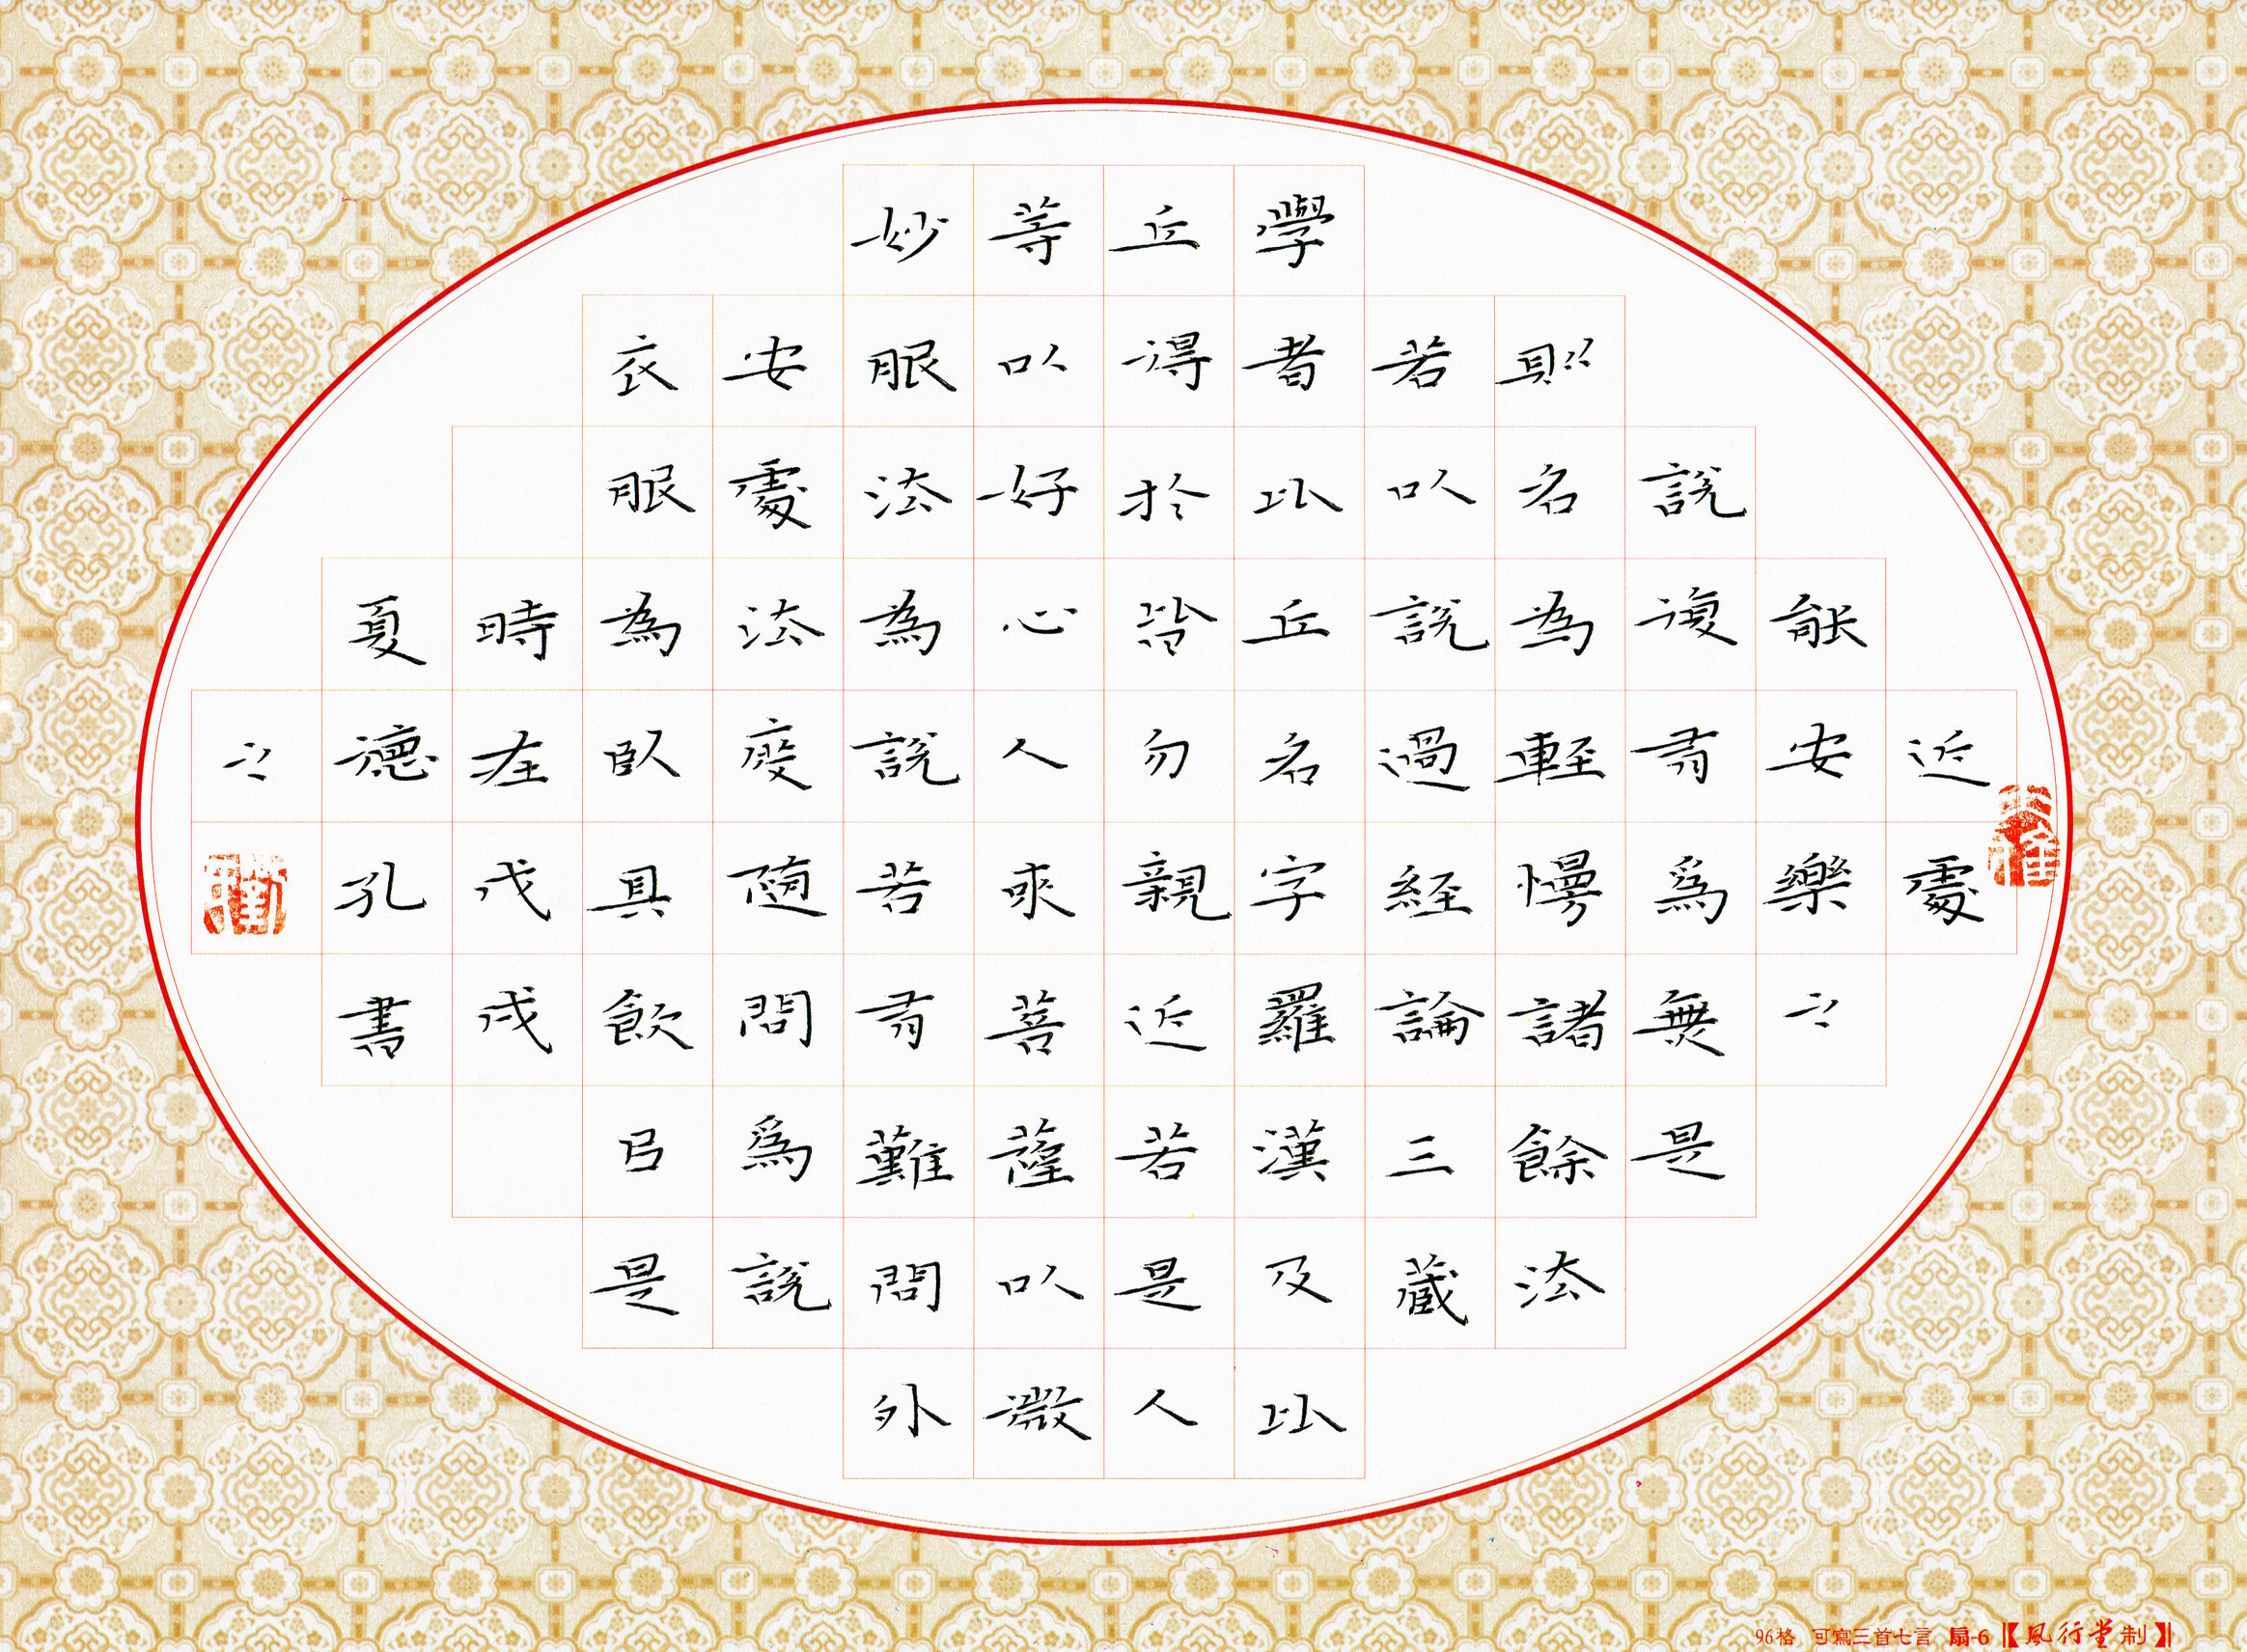 近處
能安樂之
說復有為無是
名為輕慢諸餘法
若以說過經論三藏
學者比丘名字羅漢及比
丘得於皆勿親近若是人
等以好心人來菩薩以微
妙服法為說若有難問外
安處法座隨問為說
衣服為臥具飲㠯是
時在戊戌
夏德孔書
之
96格 可寫三首七言 扇-6【風行堂制】